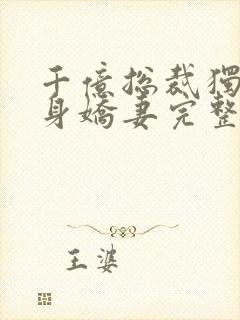 千億總裁獨
身嬌妻完整
王婆